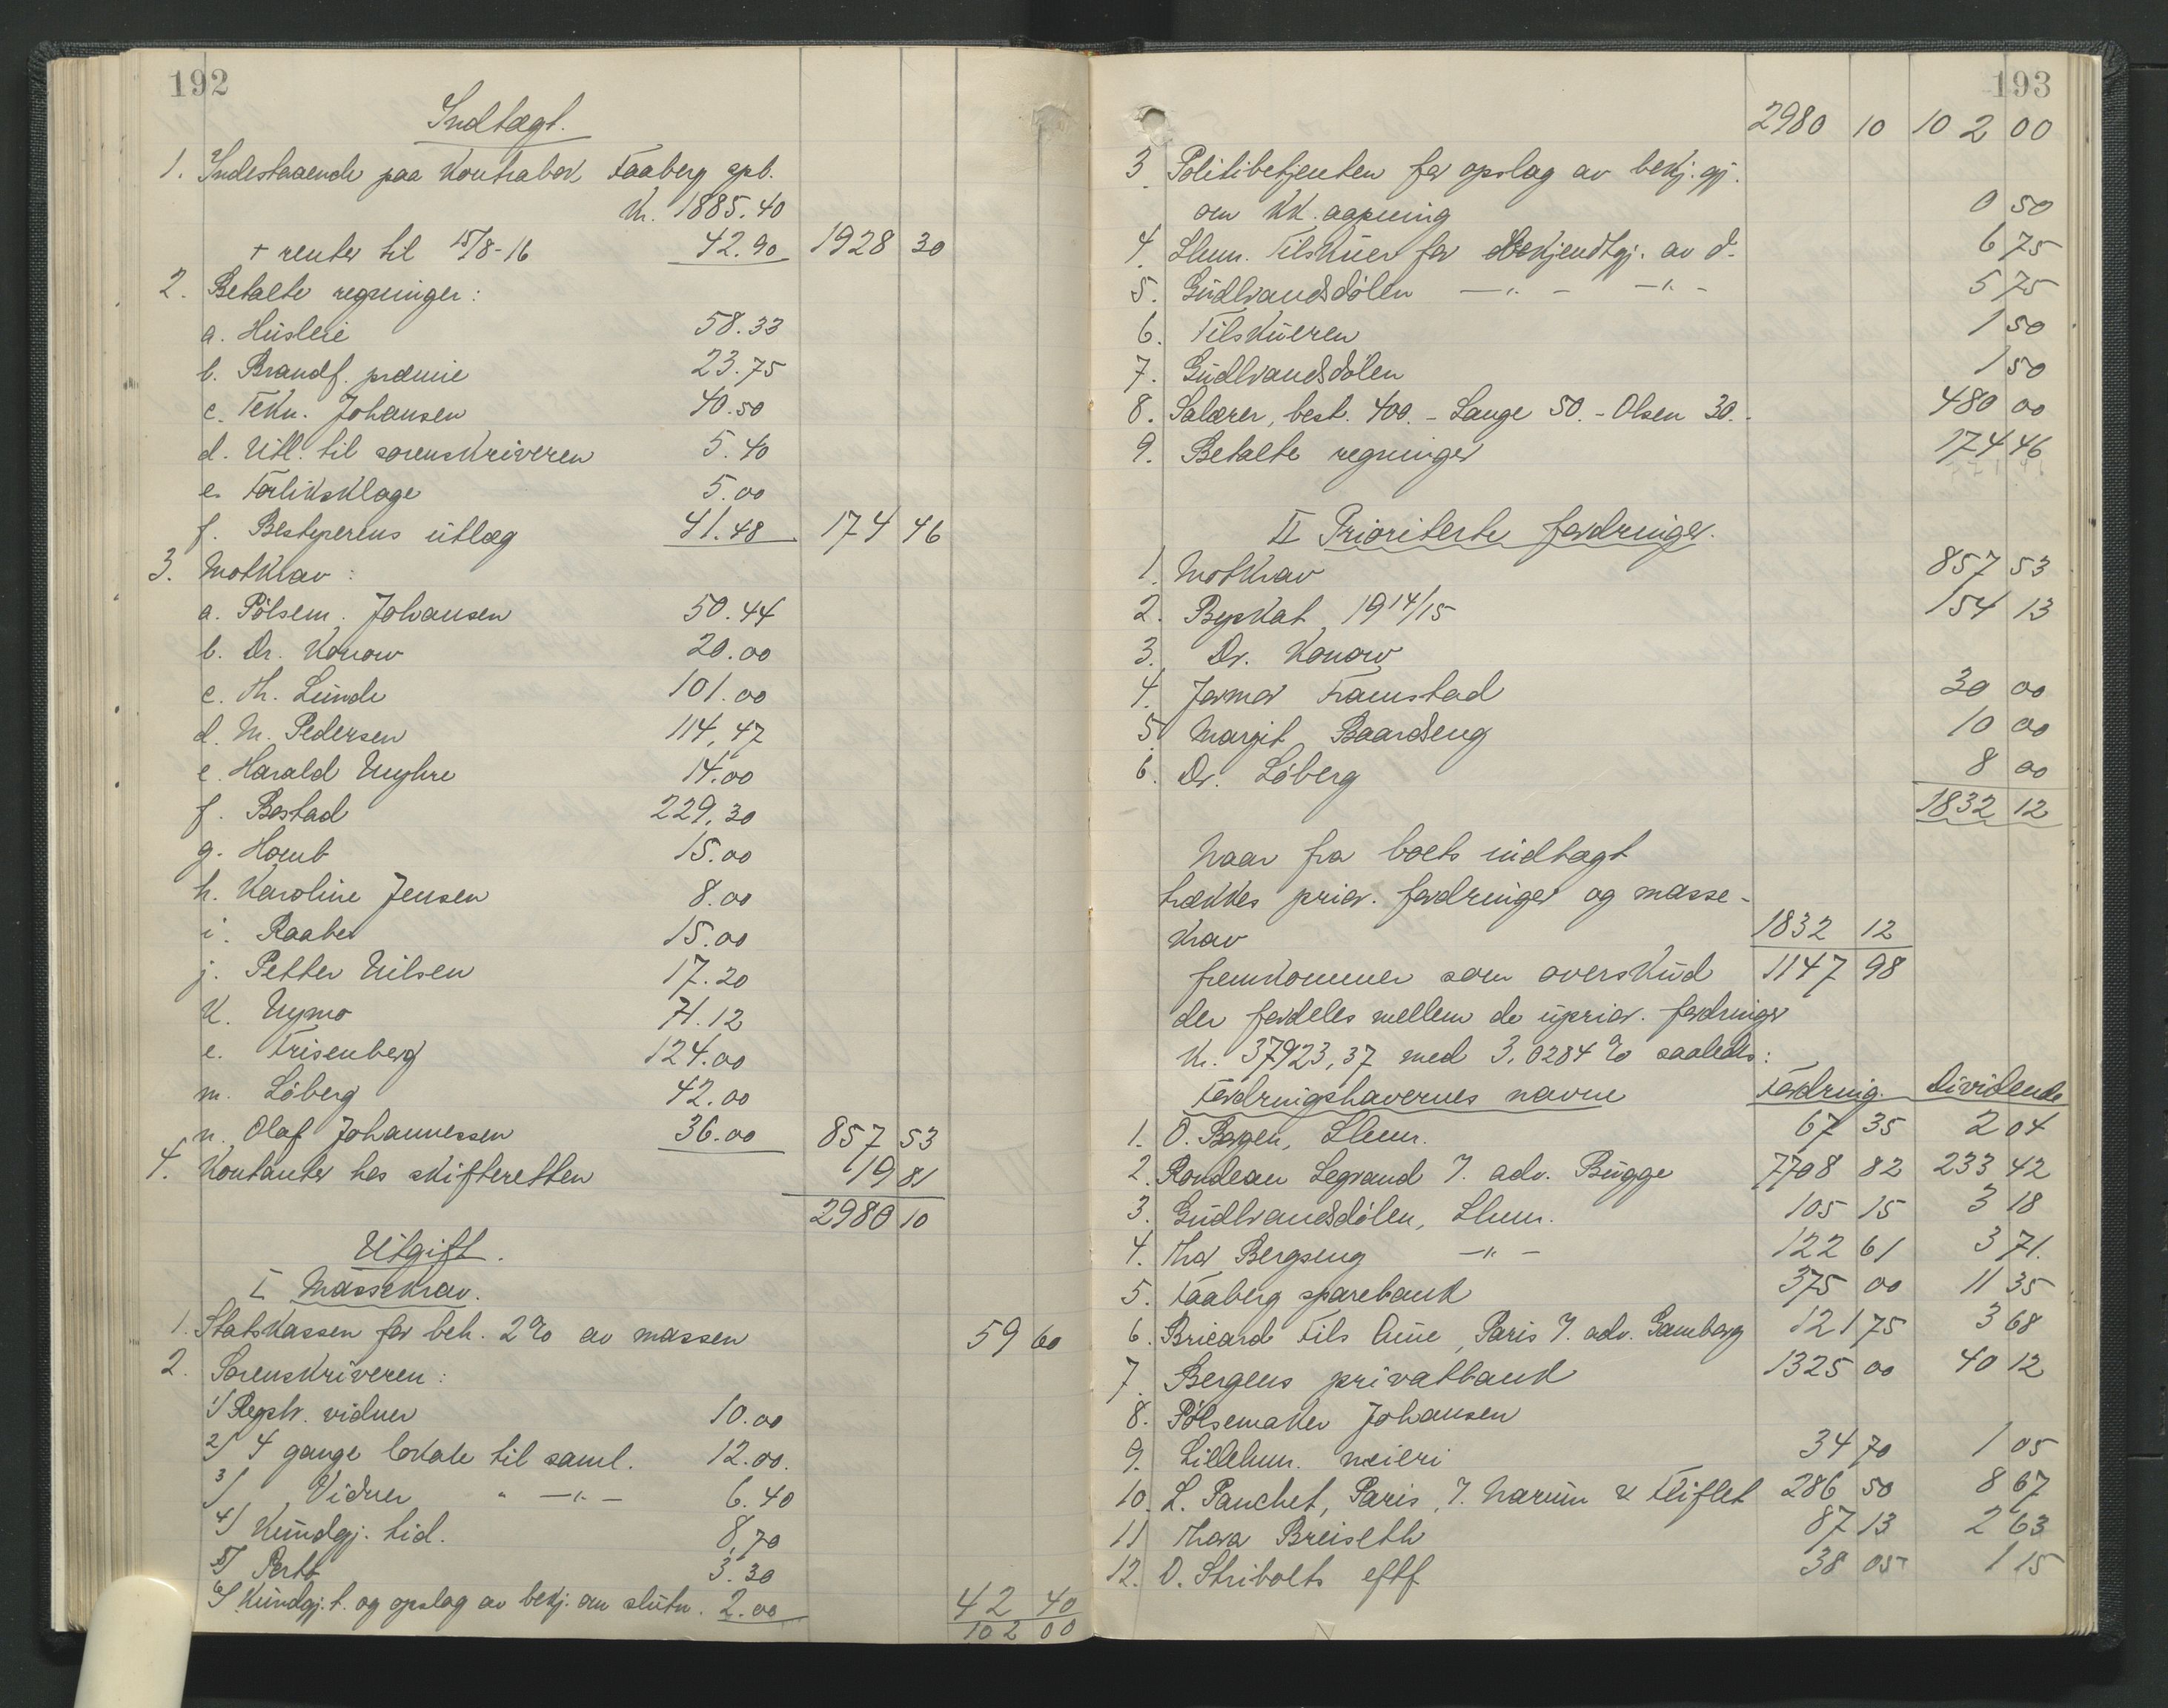 192
Indtægt.
1. Indestaaende paa Kontrabok Faaberg spb.
Kr. 1885.40
+ renter til 15/8-16 42.90 1928 30
2. Betalte regninger:
a. Húsleie 58.33
b. Brandf. præmie 23.75
c. Tekn. Johansen 40.50
d. Utl. til sorenskriveren 5.40
e. Forliksklage 5.00
f. Bestyrerens útlæg 41.48 174 46
3. Motkrav:
a. Pölsem. Johansen 50.44
b. Dr. Konow 20.00
c. Th. Lúnde 101.00
d. M. Pedersen 114,47
e. Harald Nyhre 14.00
f. Bostad 229,30
g. Homb 15.00
h. Karoline Jensen 8.00
i. Raaber 15.00
j. Petter Nilsen 17.20
k. Nymo 71.12
l. Frisenberg 124.00
m. Löberg 42.00
n. Olaf Johannessen 36.00 857 53
4. Kontanter hos skifteretten 19 81
2980 10
Utgift.
I Massekrav.
1. Statskassen for beh. 2% av massen 59 60
2. Sorenskriveren:
1) Regstr. vidner 10.00
2) 4 gange lokale til saml. 12.00.
3) Vidner " —"— 6.40
4) Kúndgj. tid. 8,70
5) Porto 3.30
6) Kúndgj. t. og opslag av bekj. om slútn. 2.00 42 40
102 00
193
2980 10 102 00
3. Politibetjenten for opslag av bekj.gj.
om KK. aapning 0 50
4. Lhmr. Tilskúer for bekjendtgj. av d. 6 75
5. Gúdbrandsdölen —"— —"— 5 75
6. Tilskúeren 1 50
7. Gúdbrandsdölen 1 50
8. Salærer, best. 400.- Lange 50.- Olsen 30.- 480 00
9. Betalte regninger 174 46
II Prioriterte fordringer.
1. Motkrav 857 53
2. Byskat 1914/15 154 13
3. Dr. Konow
4. Jormor Framstad 30 00
5. Margit Baardseng 10 00
6. Dr. Löberg 8 00
1832 12
Naar fra boets indtægt
trækkes prior. fordringer og masse-
krav 1832 12
fremkommer som overskúd 1147 98
der fordeles mellem de úprior. fordringer
Kr. 37923,37 med 3,0284 % saaledes:
Fordringshavernes navne Fordring. Dividende
1. O. Bergen, Lhmr. 67 35 2 04
2. Rondeau Legrand v. adv. Búgge 7708 82 233 42
3. Gúdbrandsdölen, Lhmr. 105 15 3 18
4. Thor Bergseng —"— 122 61 3 71.
5. Faaberg sparebank 375 00 11 35
6. Bricard Fils Aine, Paris v. adv. Gamborg 121 75 3 68
7. Bergens privatbank 1325 00 40 12
8. Pölsemaker Johansen
9. Lillehmr. meieri 34 70 1 05
10. L. Panchet, Paris, v. Narúm & Fliflet 286 50 8 67
11 Thora Breiseth 87 13 2 63
12. O. Stribolts eftf 38 05 1 15